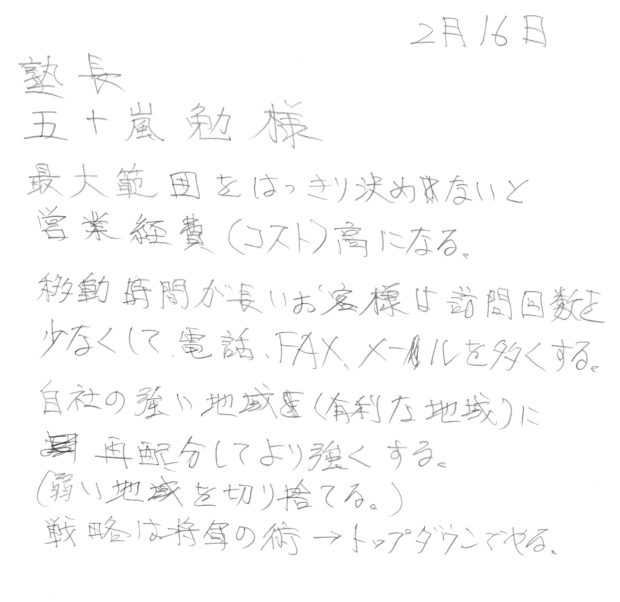 2月16日
塾長
五十嵐勉様
最大範囲をはっきり決めないと
営業経費(コスト)高になる。
移動時間が長いお客様は訪問回数を
少なくして、電話、FAX、メールを多くする。
自社の強い地域を(有利な地域)に
再配分してより強くする。
(弱い地域を切り捨てる。)
戦略は将軍の術→トップダウンでやる。